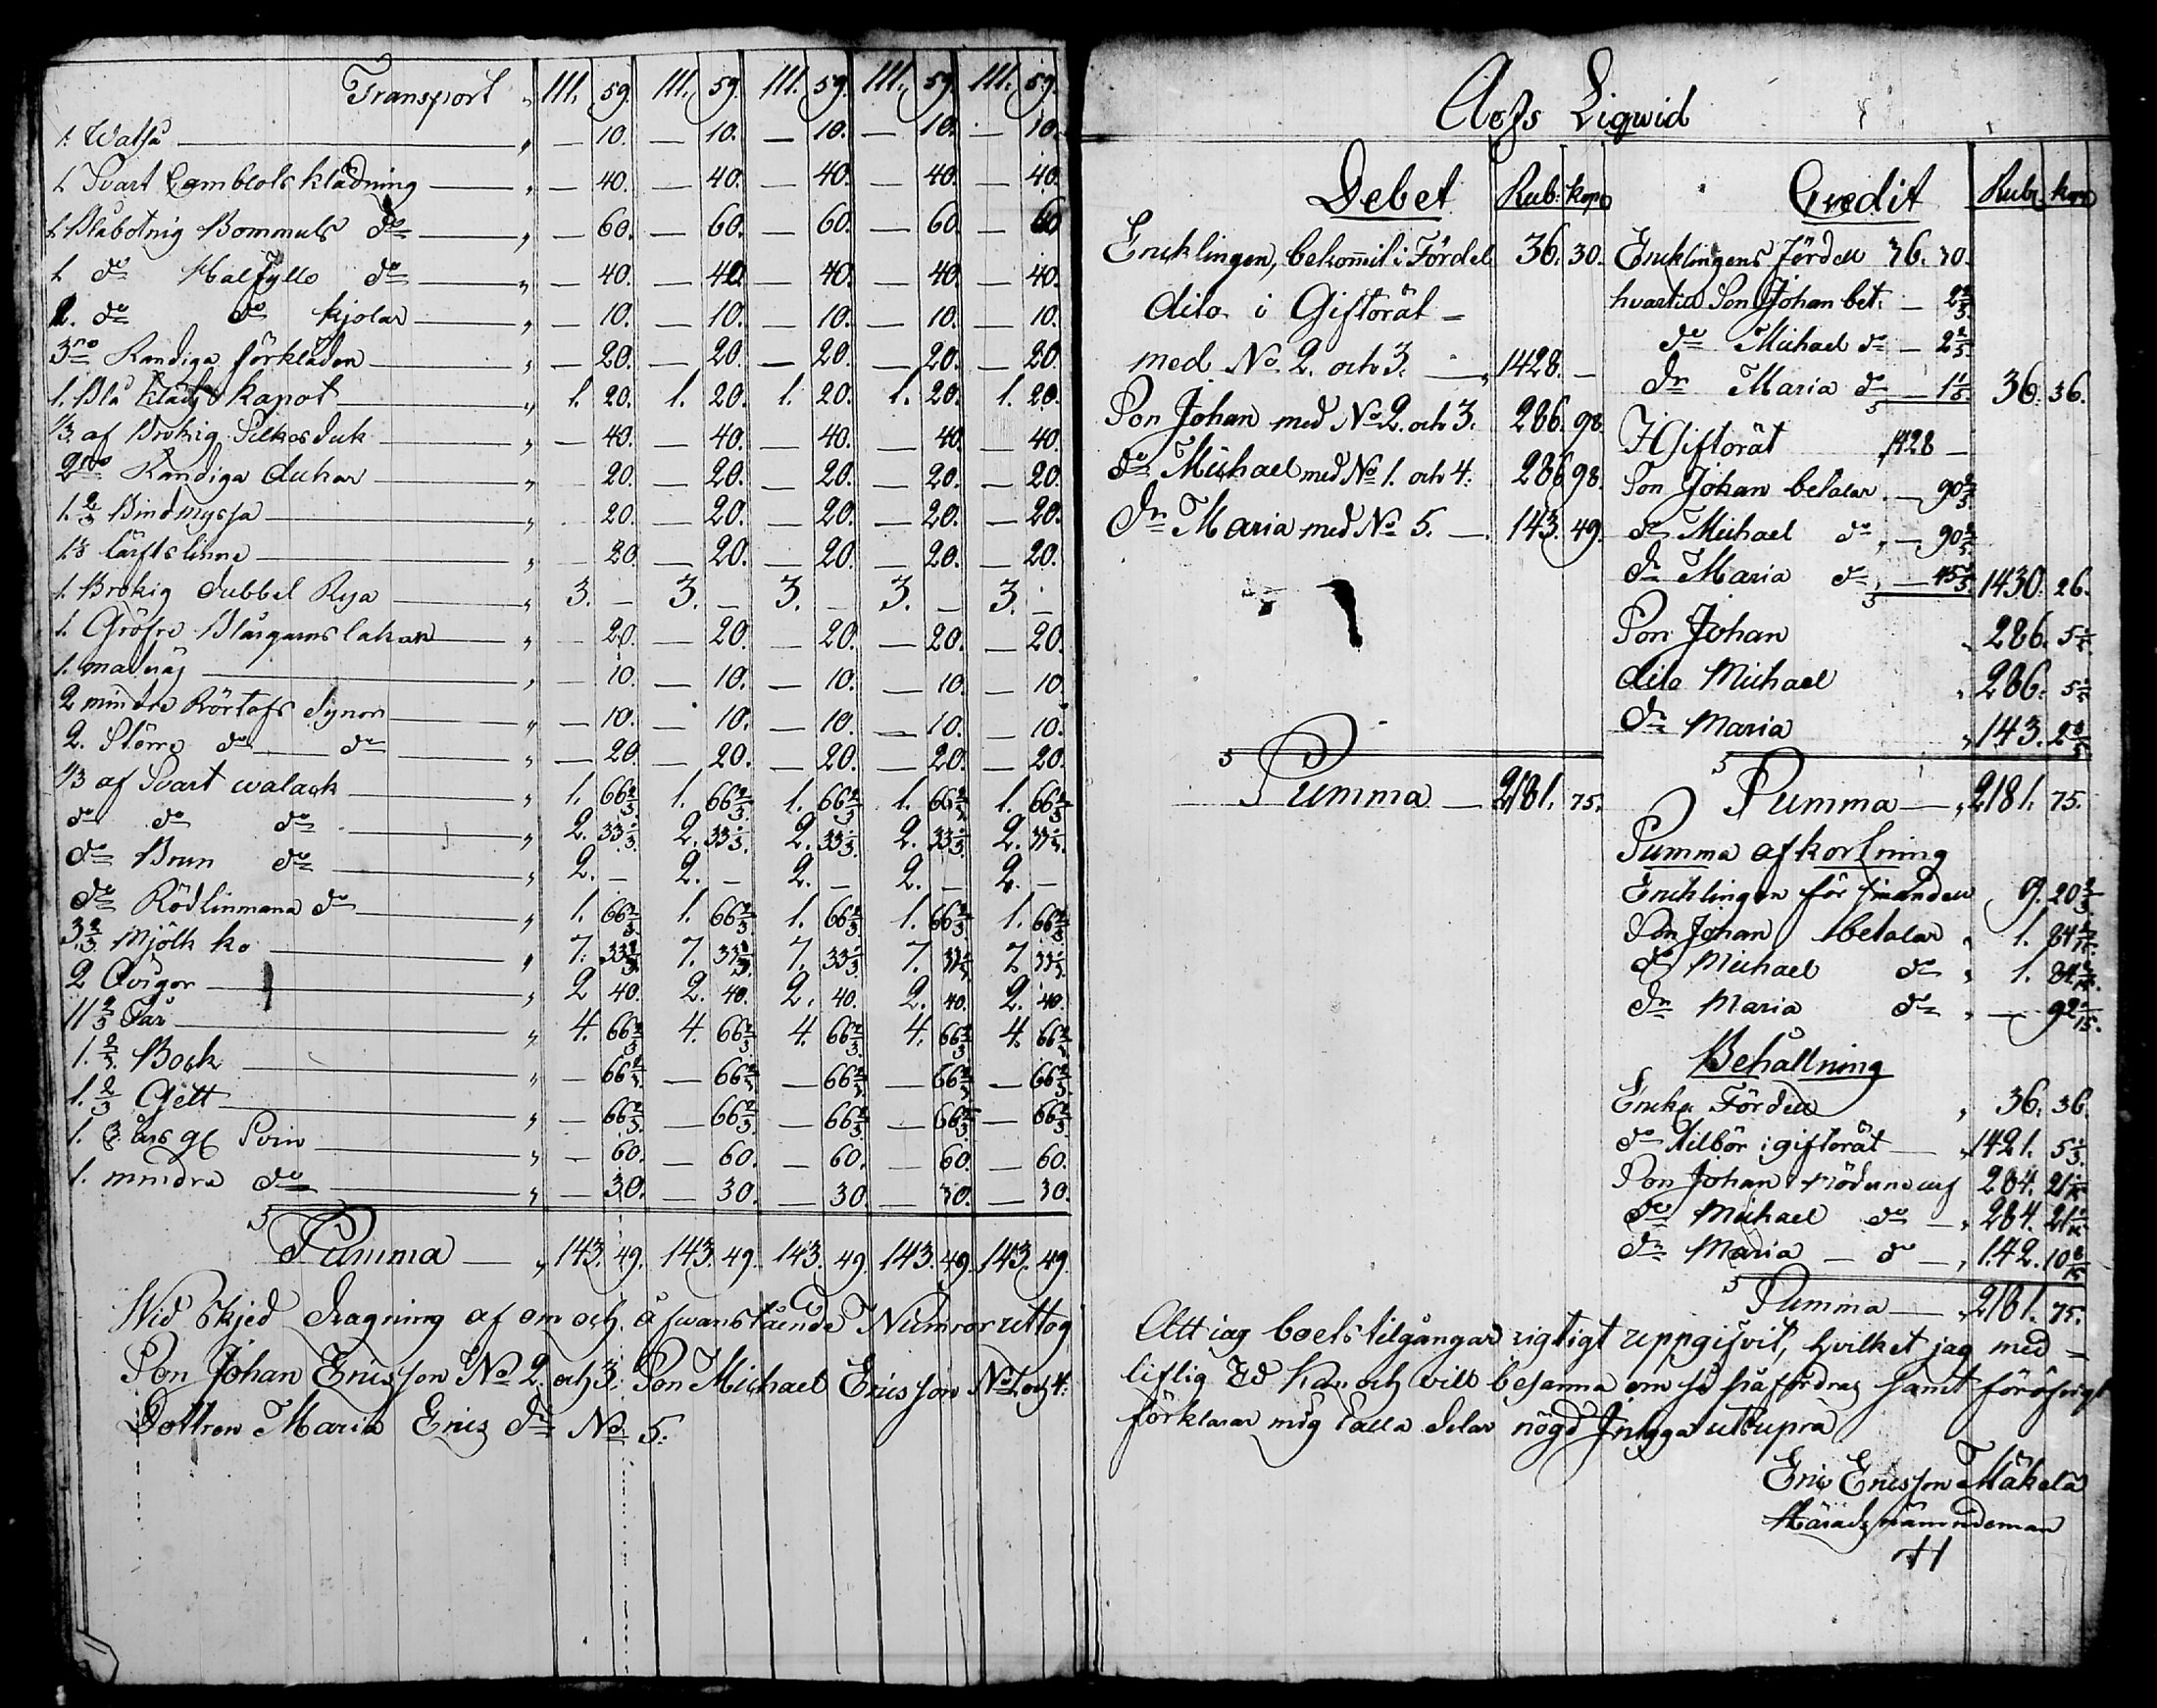 Transport „ 111. 59. 111. 59. 111. 59. 111. 59. 111. 59.
1. „ — 10. — 10. — 10. — 10. — 10.
1 Svart klädning „ — 40. — 40. — 40. — 40. — 40.
1 Blåbotnig Bommuls do „ — 60. — 60. — 60. — 60. — 60
1 do Halfylle do „ — 40. — 40. — 40. — 40. — 40.
2. do do kjolar „ — 10. — 10. — 10. — 10. — 10.
3ne Randiga förkläden „ — 20. — 20. — 20. — 20. — 20.
1. Blå Kläds kapot „ 1. 20. 1. 20. 1. 20. 1. 20. 1. 20.
1/3 af Brokig Silkesduk „ — 40. — 40. — 40. — 40. — 40.
2ne Randiga dukar „ — 20. — 20. — 20. — 20. — 20.
1. 2/3 Bindmyssa „ — 20. — 20. — 20. — 20. — 20.
lärftslinne „ — 20. — 20. — 20. — 20. — 20.
1. Brokig dubbel Rya „ 3. — 3. — 3. — 3. — 3. —
1. Gröfre Blårgarnslakan „ — 20. — 20. — 20. — 20. — 20.
1. „ — 10. — 10. — 10. — 10. — 10.
2 mindre „ — 10. — 10. — 10. — 10. — 10.
2. Större do do „ — 20. — 20. — 20. — 20. — 20.
1/3 af Svart walack „ 1. 66 2/3 1. 66 2/3 1. 66 2/3 1. 66 2/3 1. 66 2/3
do do do „ 2. 33 1/3 2. 33 1/3 2. 33 1/3 2. 33 1/3 2. 33 1/3
do Brun do „ 2. — 2. — 2. — 2. — 2. —
do Rödlinmana do „ 1. 66 2/3 1. 66 2/3 1. 66 2/3 1. 66 2/3 1. 66 2/3
3 2/3 Mjölk ko „ 7. 33 1/3 7. 33 1/3 7. 33 1/3 7. 33 1/3 7. 33 1/3
2 Qvigor „ 2 40. 2. 40. 2. 40. 2. 40. 2. 40.
11 2/3 Får „ 4. 66 2/3 4. 66 2/3 4. 66 2/3 4. 66 2/3 4. 66 2/3
1. 2/3 Bock „ — 66 2/3 — 66 2/3 — 66 2/3 — 66 2/3 — 66 2/3
1. 2/3 Gett „ — 66 2/3 — 66 2/3 — 66 2/3 — 66 2/3 — 66 2/3
1. Svin „ — 60. — 60. — 60. — 60. — 60.
1. mindre do „ — 30. — 30. — 30. — 30. — 30.
Summa „ 143. 49. 143. 49. 143. 49. 143. 49. 143. 49.
Wid skjed dragning af om och åfwanstående Numror uttog
Son Johan Ericsson No 2. och 3. Son Michael Ericsson No 1. och 4.
Dottren Maria Erics dr No 5.
Liqwid
Debet Rub: kop
Encklingen, bekommit i Fördel 36. 30.
dito i Giftorät
med No 2. och 3. „ 1428. —
Son Johan med No 2. och 3. 286. 98.
do Michael med No 1. och 4: 286 98.
dr Maria med No 5. — 143. 49.
Summa — 2181. 75.
Credit Rub: kop
Encklingens fördel 36. 30.
hvartil Son Johan bet: — 2 2/5
do Michael do — 2 2/5
dr Maria do — 1 1/5 36. 36.
I Giftorät 1428 —
Son Johan betalar — 90 2/5
do Michael do „ — 90 2/5
dr Maria do „ — 45 1/5 1430. 26.
Son Johan „ 286. 5 1/5
dito Michael „ 286. 5 1/5
dr Maria „ 143. 2 3/5
Summa — „ 2181. 75.
Summa afkortning
Encklingen för 9. 20 2/3
Son Johan betalar „ 1. 84
do Michael do „ 1. 84
dr Maria do „ — 92
Behållning
Enckl Fördel „ 36. 36.
do tilbör i giftorät — „ 1421. 5 1/3
Son Johan möderne arf 284. 21
do Michael do — „ 284. 21
dr Maria — do — „ 142. 10
Summa — „ 2181. 75.
Att jag boets tilgångar rigtigt uppgifvit, hvilket jag med
liflig Ed kan och vill besanna om så påfordras samt föröfrigt
förklarar mig i alla delar nögd utsupra
Eric Ericsson Mäkelä
Häradsnämndeman